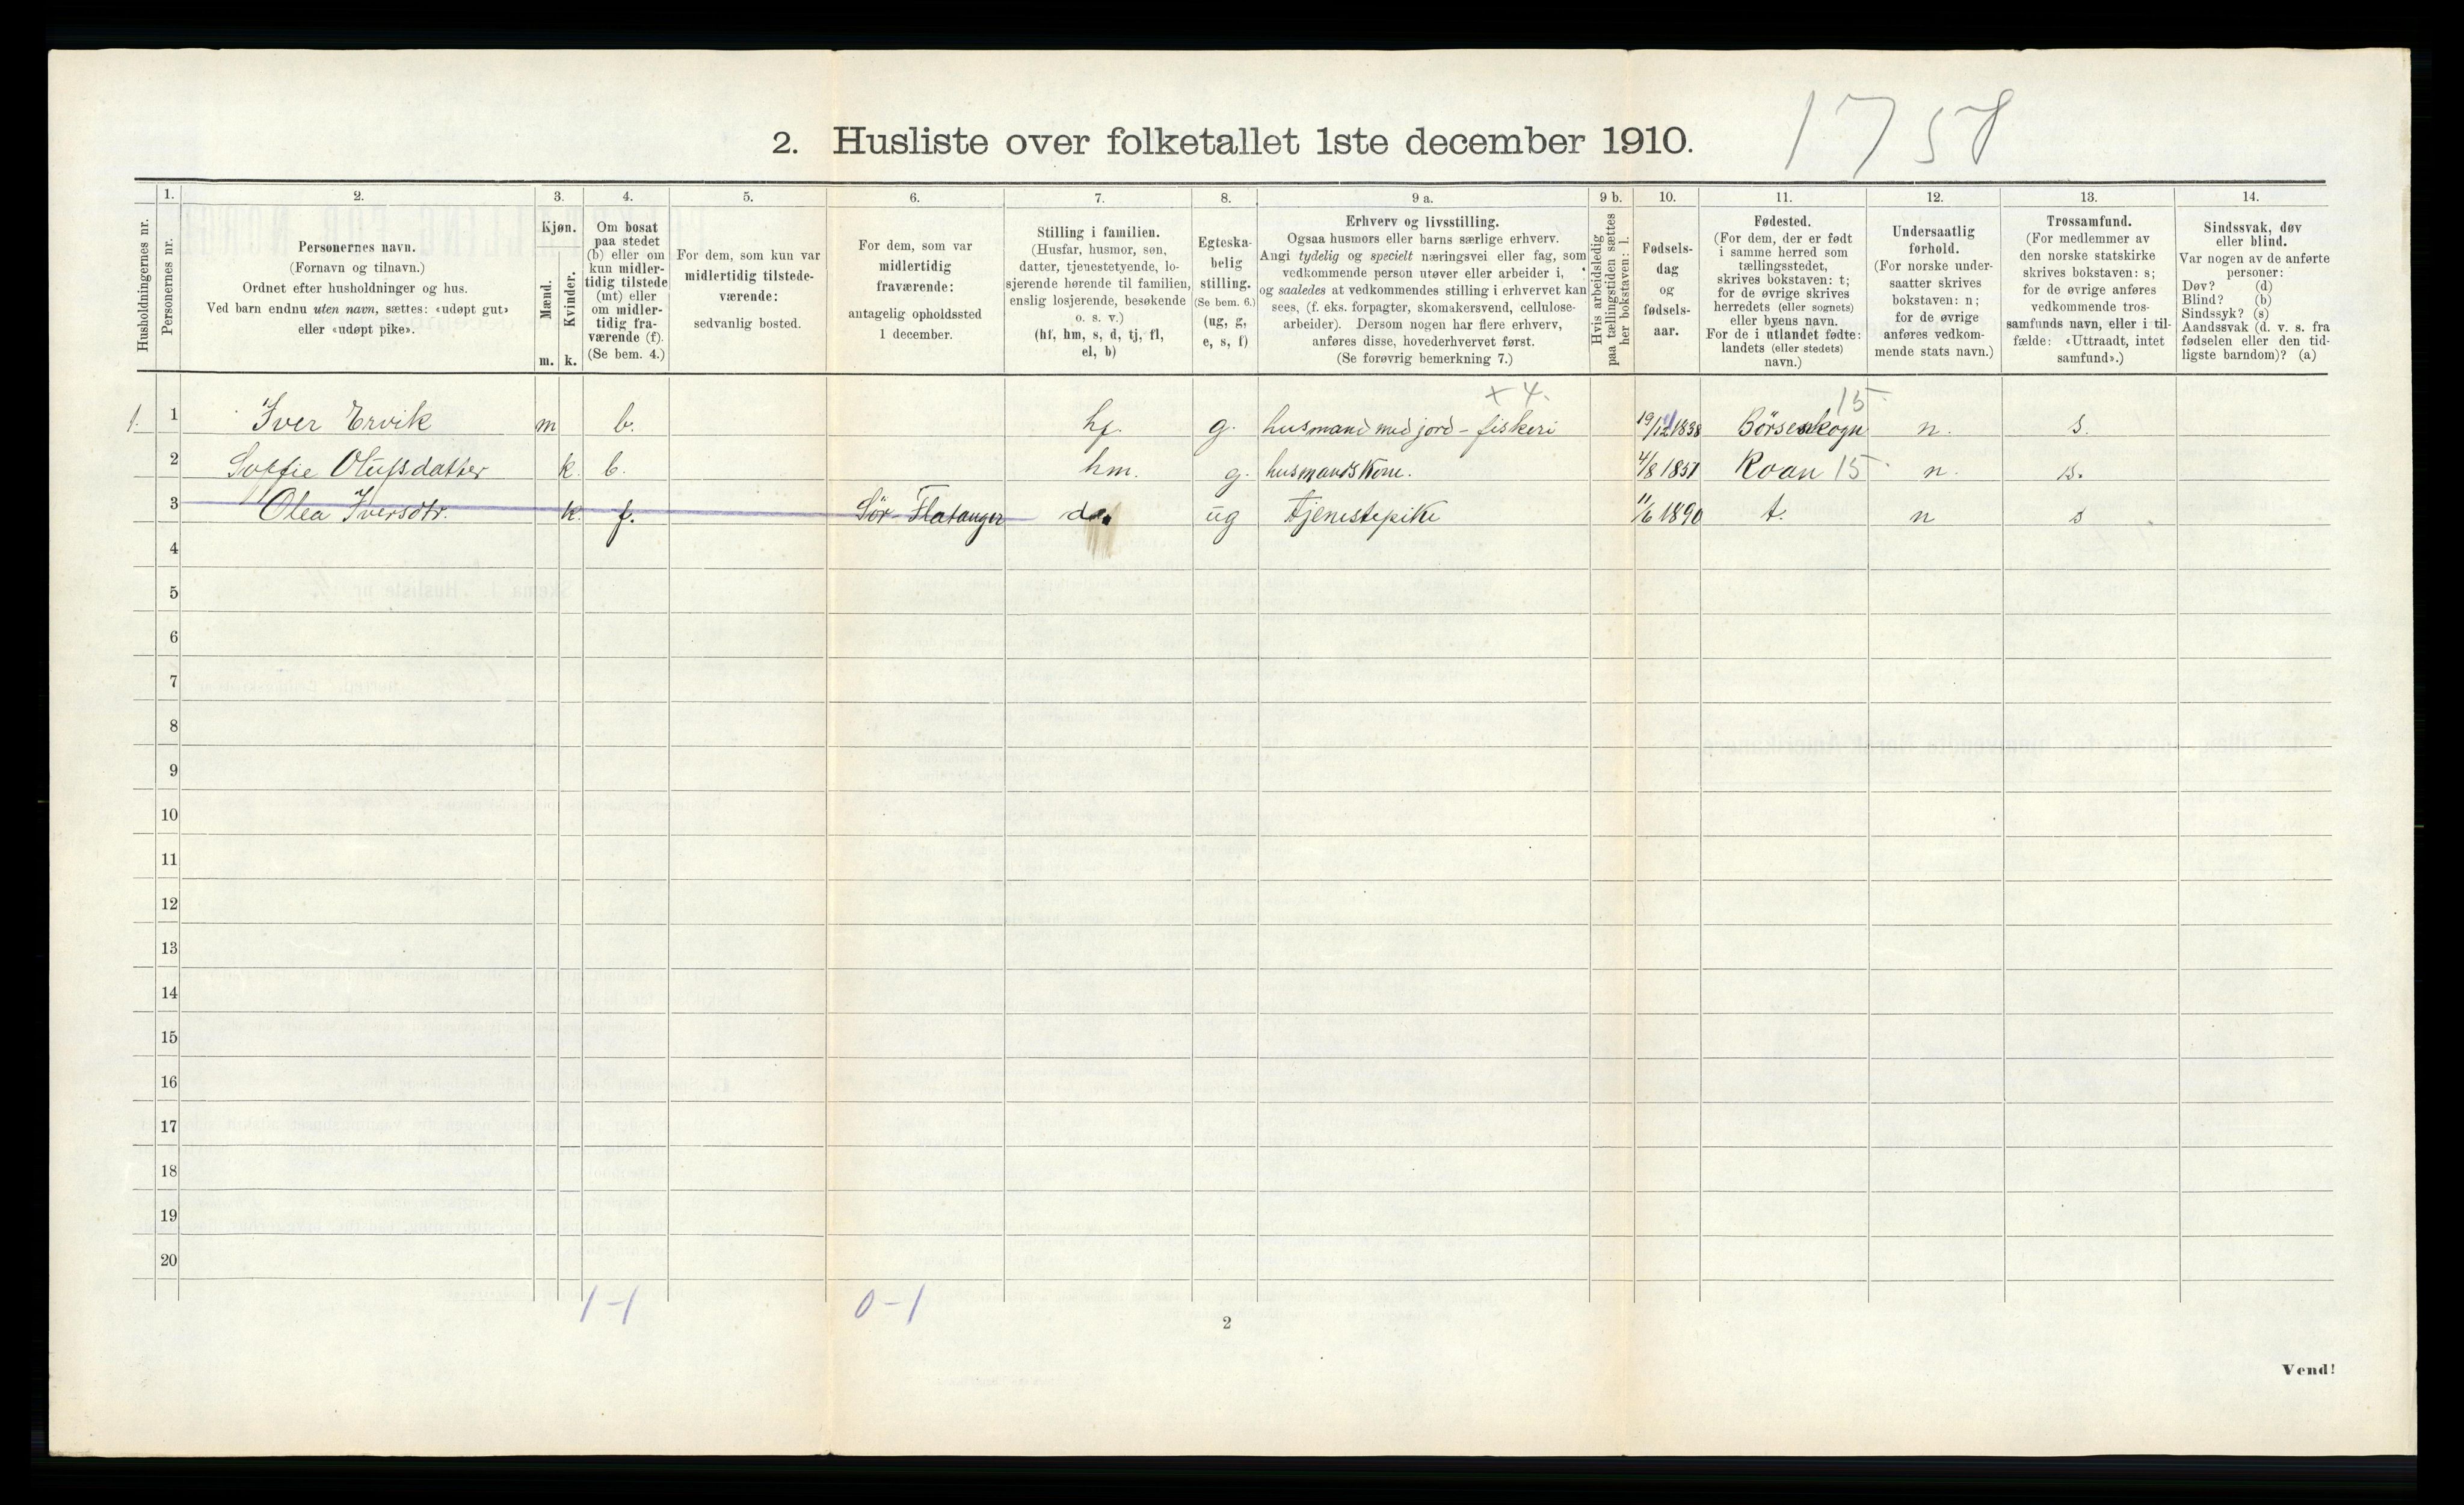 2. Husliste over folketallet 1ste december 1910.
1758
Husholdningernes nr.
1.
Personernes nr.
2.
Personernes navn.
(Fornavn og tilnavn.)
Ordnet efter husholdninger og hus.
Ved barn endnu uten navn, sættes: «udøpt gut»
eller «udøpt pike».
3.
Kjøn.
Mænd.
Kvinder.
m. k.
4.
Om bosat
paa stedet
(b) eller om
kun midler-
tidig tilstede
(mt) eller
om midler-
tidig fra-
værende (f).
(Se bem. 4.)
5.
For dem, som kun var
midlertidig tilstede-
værende:
sedvanlig bosted.
6.
For dem, som var
midlertidig
fraværende:
antagelig opholdssted
1 december.
7.
Stilling i familien.
(Husfar, husmor, søn,
datter, tjenestetyende, lo-
sjerende hørende til familien,
enslig losjerende, besøkende
o. s. v.)
(hf, hm, s, d, tj, fl,
el, b)
8.
Egteska-
belig
stilling.
(Se bem. 6.)
(ug, g,
e, s, f)
9 a.
Erhverv og livsstilling.
Ogsaa husmors eller barns særlige erhverv.
Angi tydelig og specielt næringsvei eller fag, som
vedkommende person utøver eller arbeider i,
og saaledes at vedkommendes stilling i erhvervet kan
sees, (f. eks. forpagter, skomakersvend, cellulose-
arbeider). Dersom nogen har flere erhverv,
anføres disse, hovederhvervet først.
(Se forøvrig bemerkning 7.)
9 b.
Hvis arbeidsledig
paa tællingstiden sættes
her bokstaven: l.
10.
Fødsels-
dag
og
fødsels-
aar.
11.
Fødested.
(For dem, der er født
i samme herred som
tællingsstedet,
skrives bokstaven: t;
for de øvrige skrives
herredets (eller sognets)
eller byens navn.
For de i utlandet fødte:
landets (eller stedets)
navn.)
12.
Undersaatlig
forhold.
(For norske under-
saatter skrives
bokstaven: n;
for de øvrige
anføres vedkom-
mende stats navn.)
13.
Trossamfund.
(For medlemmer av
den norske statskirke
skrives bokstaven: s;
for de øvrige anføres
vedkommende tros-
samfunds navn, eller i til-
fælde: «Uttraadt, intet
samfund».)
14.
Sindssvak, døv
eller blind.
Var nogen av de anførte
personer:
Døv? (d)
Blind? (b)
Sindssyk? (s)
Aandssvak (d. v. s. fra
fødselen eller den tid-
ligste barndom)? (a)
+ 4. 15
1. 1 Iver Ervik m b. hf. g. husmand med jord - fiskeri 1838 Börseskogn n. s.
2 Soffie Olufsdatter k. b. hm. g. husmandskone. 4/8 1851 Roan 15 n. s.
3 Olea Iversdtr. k. f. Sör-Flatanger d. ug tjenestepike 11/6 1890 t. n s
4
5
6
7
8
9
10
11
12
13
14
15
16
17
18
19
20
1-1 0-1
2
Vend!